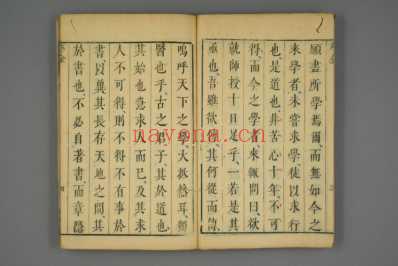 願盡所學焉爾而無如今之
來學者未嘗求學徒以求行
也是道也非苦心十年不可
得而今之學者來輒問曰欲
就師授十日足乎一若是其
亟也吾雖欲其何從而
嗚呼天下之學大抵然耳獨
醫也乎古之君子其於道也
其始也意求以而已及其求
人不可得則不得不有事於
書以冀其長存天地之間其
於書也不必自著書而章
nayona.cn